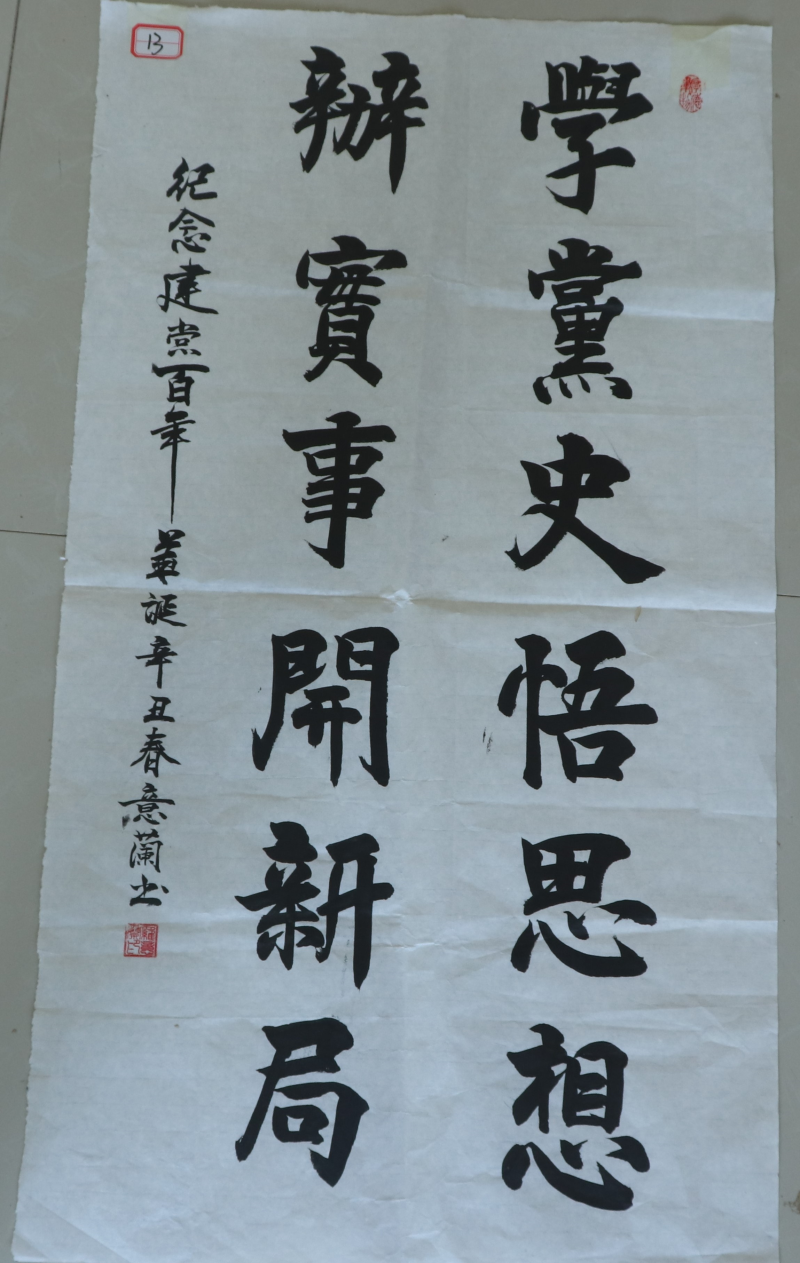 學黨史悟思想
辦實事開新局
纪念建党百年華诞辛丑春意蘭书
13